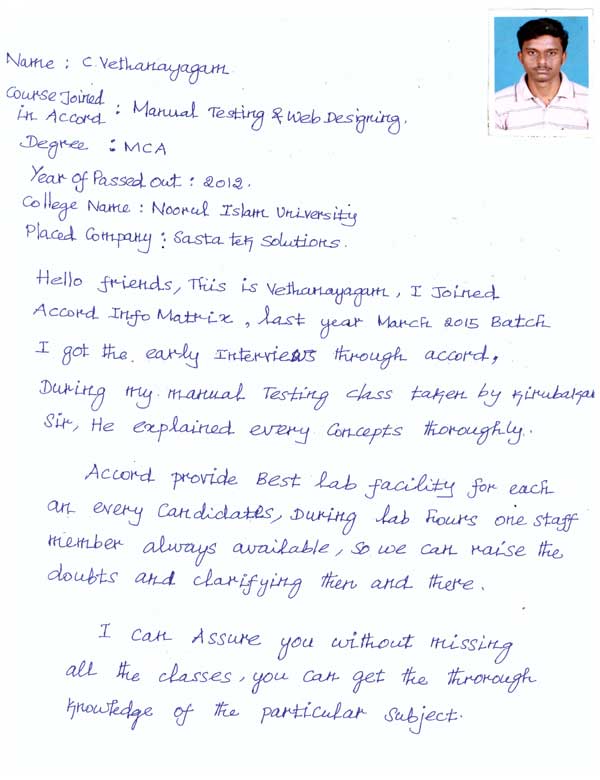 Name : C. Vethanayagam
Course Joined
in Accord : Manual Testing & Web Designing.
Degree : MCA
Year of Passed out : 2012.
College Name : Noorul Islam University
Placed Company : Sasta tek Solutions.
Hello friends, This is Vethanayagam, I Joined
Accord Info Matrix, last year March 2015 Batch
I got the early Interviews through accord,
During my manual Testing class taken by Kirubakar
Sir, He explained every Concepts thoroughly.
Accord provide Best lab facility for each
an every Candidates, During lab hours one staff
member always available, so we can raise the
doubts and clarifying then and there.
I can Assure you without missing
all the classes, you can get the throrough
knowledge of the particular subject.